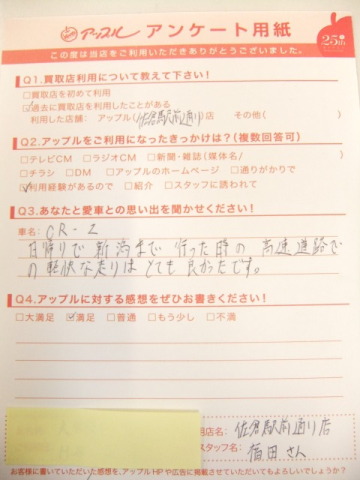 アップル アンケート用紙
25th
この度は当店をご利用いただきありがとうございました。
Q1.買取店利用について教えて下さい!
□買取店を初めて利用
☑過去に買取店を利用したことがある
利用した店舗: アップル(佐倉駅前通り)店 その他( )
Q2.アップルをご利用になったきっかけは?(複数回答可)
□テレビCM □ラジオCM □新聞・雑誌(媒体名/ )
□チラシ □DM □アップルのホームページ □通りがかりで
☑利用経験があるので □紹介 □スタッフに誘われて
Q3.あなたと愛車との思い出を聞かせください!
車名: CR-Z
日帰りで新潟まで行った時の高速道路で
の軽快な走りはとても良かったです。
Q4.アップルに対する感想をぜひお書きください!
□大満足 ☑満足 □普通 □もう少し □不満
用店名: 佐倉駅前通り店
スタッフ名: 福田さん
お客様に書いていただいた感想を、アップルHPや広告に掲載させていただいてもよろしいでしょうか?